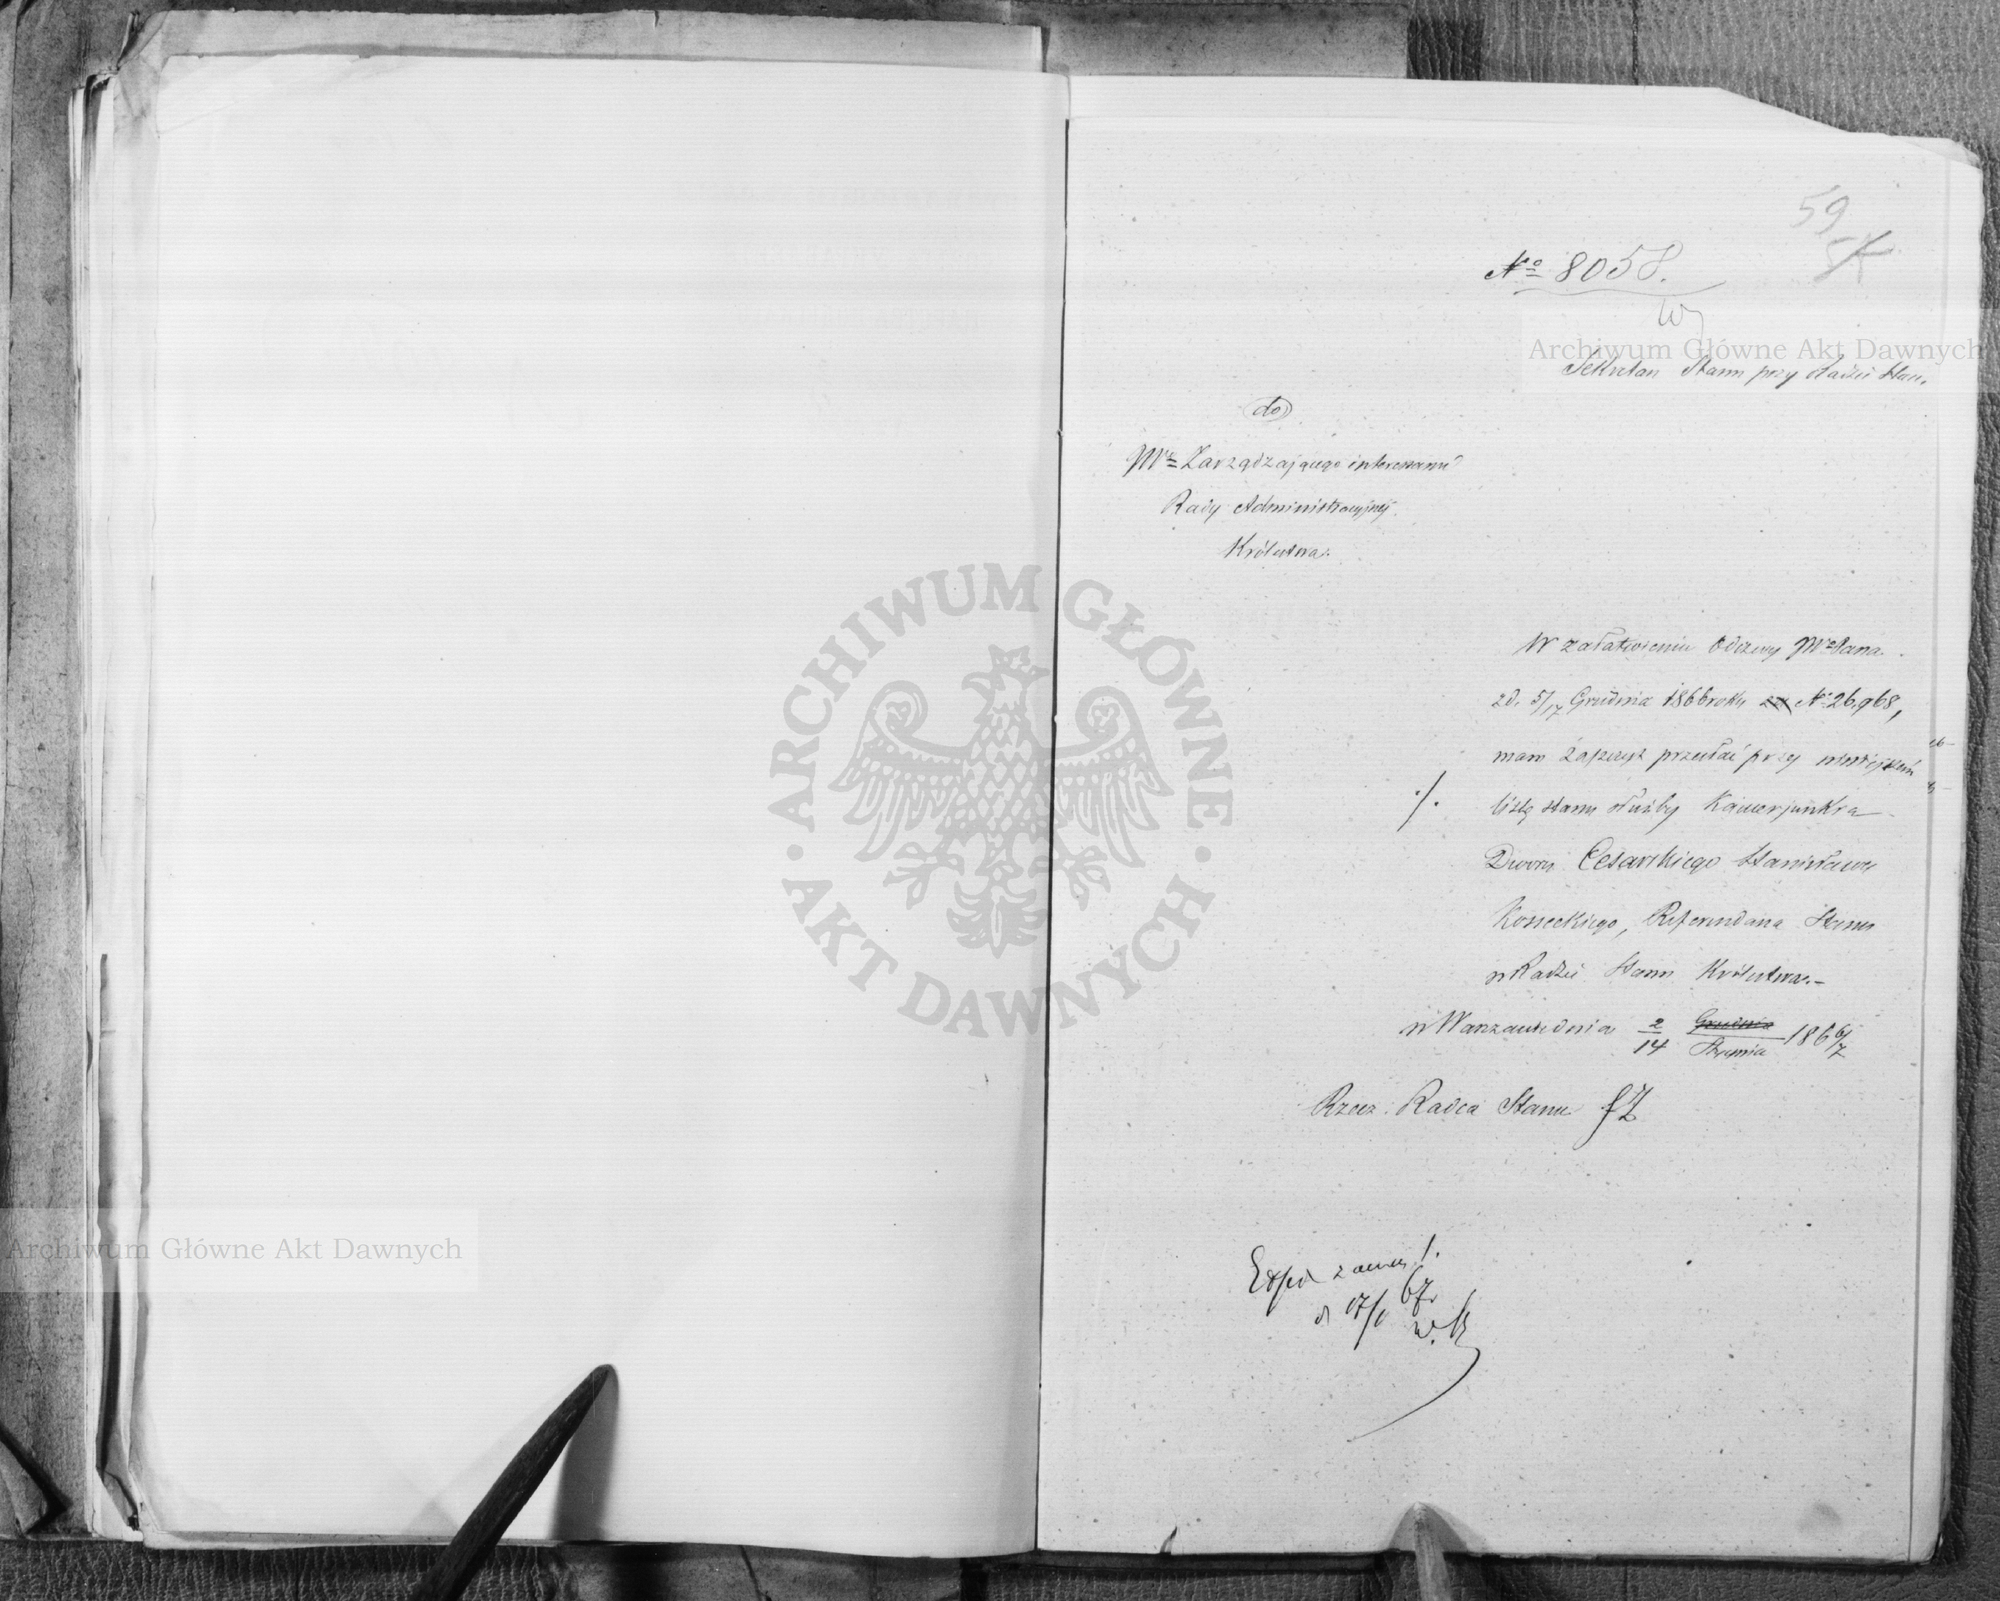 59
№ 8058.
Archiwum Główne Akt Dawnych
Sekretarz Stanu przy Radzie Stanu
do
JW Zarządzającego interesami
Rady Administracyjnej
Królestwa.
W załatwieniu Odezwy JW Pana
z d. 5/17 Grudnia 1866 roku № 26,968,
mam zaszczyt przesłać przy niniejszém
listę stanu służby Kamerjunkra
Dworu Cesarskiego Stanisława
Kosseckiego, Referendarza Stanu
w Radzie Stanu Królestwa.–
w Warszawie dnia 2/14 Grudnia Stycznia 1866/7
Rzecz. Radca Stanu
d 17/1 67r
ARCHIWUM GŁÓWNE
AKT DAWNYCH
Archiwum Główne Akt Dawnych